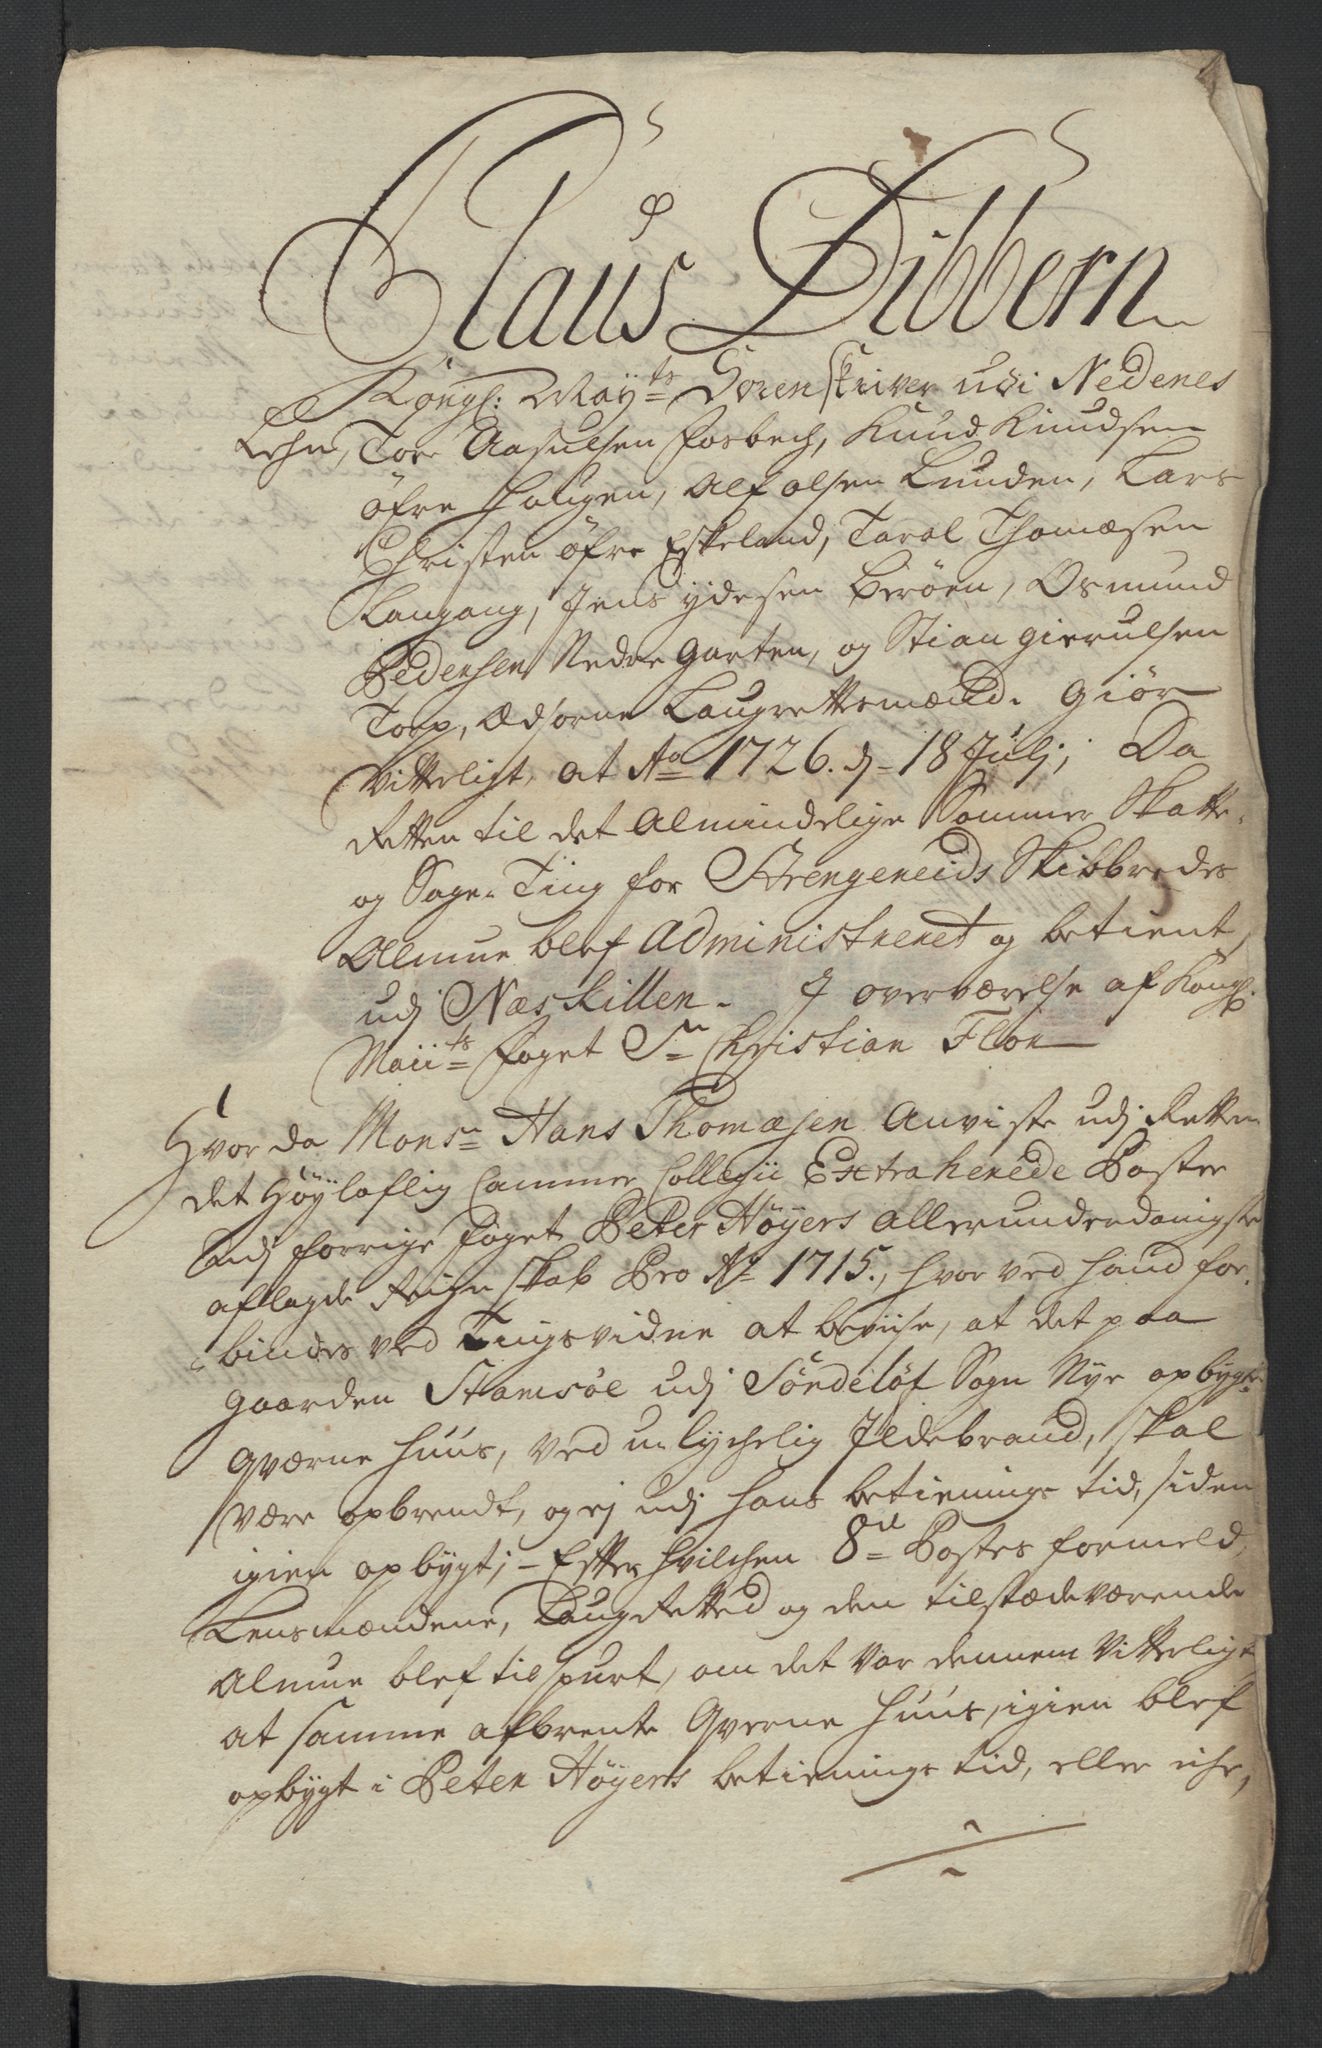 Claus Dibbern
Kongl: Mayts Sorenskriver udi Nedenes
Lehn, Tore Aasulsen Fosbech, Knud Knudsen
öfre Haugen, Alf Olsen Lunden, Lars
Christen öfre Eskeland, Tarol Thomæsen
Langang, Jens ydesen Beröen, Osmund
Pedersen Nedre Garten, og Stian gierulsen
Torp, Edsorne Laugrettsmænd. Giör
Vitterligt, at Ao 1726. d 18 Julj; Da
Retten til det Almindelige Sommer Skatte-
og Sage-Ting for Strengereids Skibbredes
Almue blef Administreret og betient
udj Næskillen. I overværelse af Kongl.
Maiits Foget Sr Christian Flor
Hvor da Monsr Hans Thomæsen Anviste udj Retten
det Höyloflig Cammer Collegii Extraherede Poster
Udj forrige Foget Peter Höyers allerunderdanigste
aflagde Reignskab Pro Ao 1715., hvorved hand for-
bindes ved Tingsvidne at beviise, at det paa
gaarden Stamsöe udj Söndelöf Sogn Nye opbygte
Qværne Huus, ved ulychelig Ildebrand, skal
være opbrendt, og ej udj hans betienings tid, siden
igien opbygt; - Efter hvilchen 8de Postes formeld,
Lensmændene, LaugRetted og den tilstædeværende
Almue blef tilspurt, om det var dennem Vitterligt
at samme afbrente Qverne Huus, igien blef
opbygt i Peter Höyers betienings tid, eller iche,